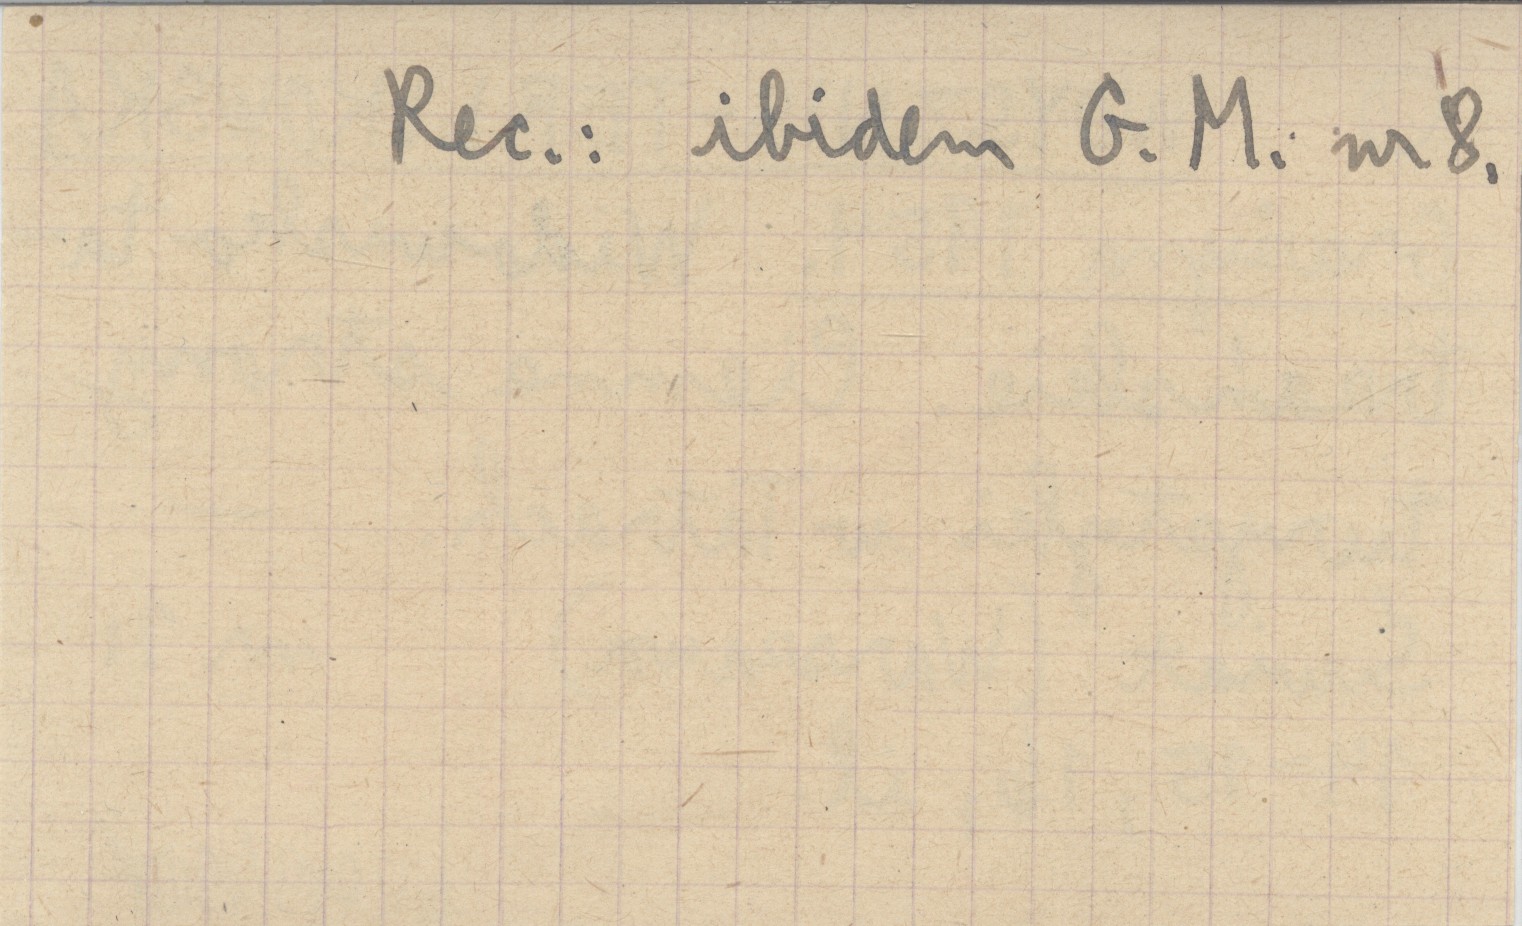 Rec.: ibidem G. M. nr 8.